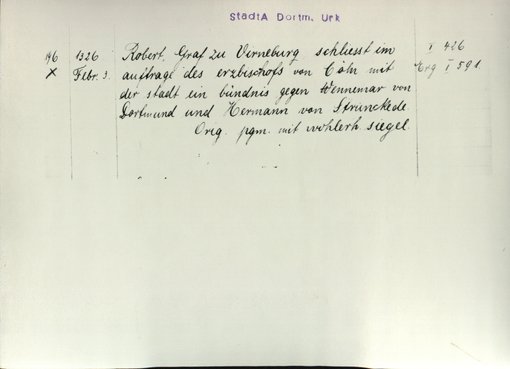 StadtA Dortm. Urk
196 1326 Robert, Graf zu Virneburg schliesst im I 426
X Febr. 3. auftrage des erzbischofs von Cöln mit Erg I 591
der stadt ein bündnis gegen Wennemar von
Dortmund und Hermann von Strünckede.
Orig. pgm. mit wohlerh. siegel.